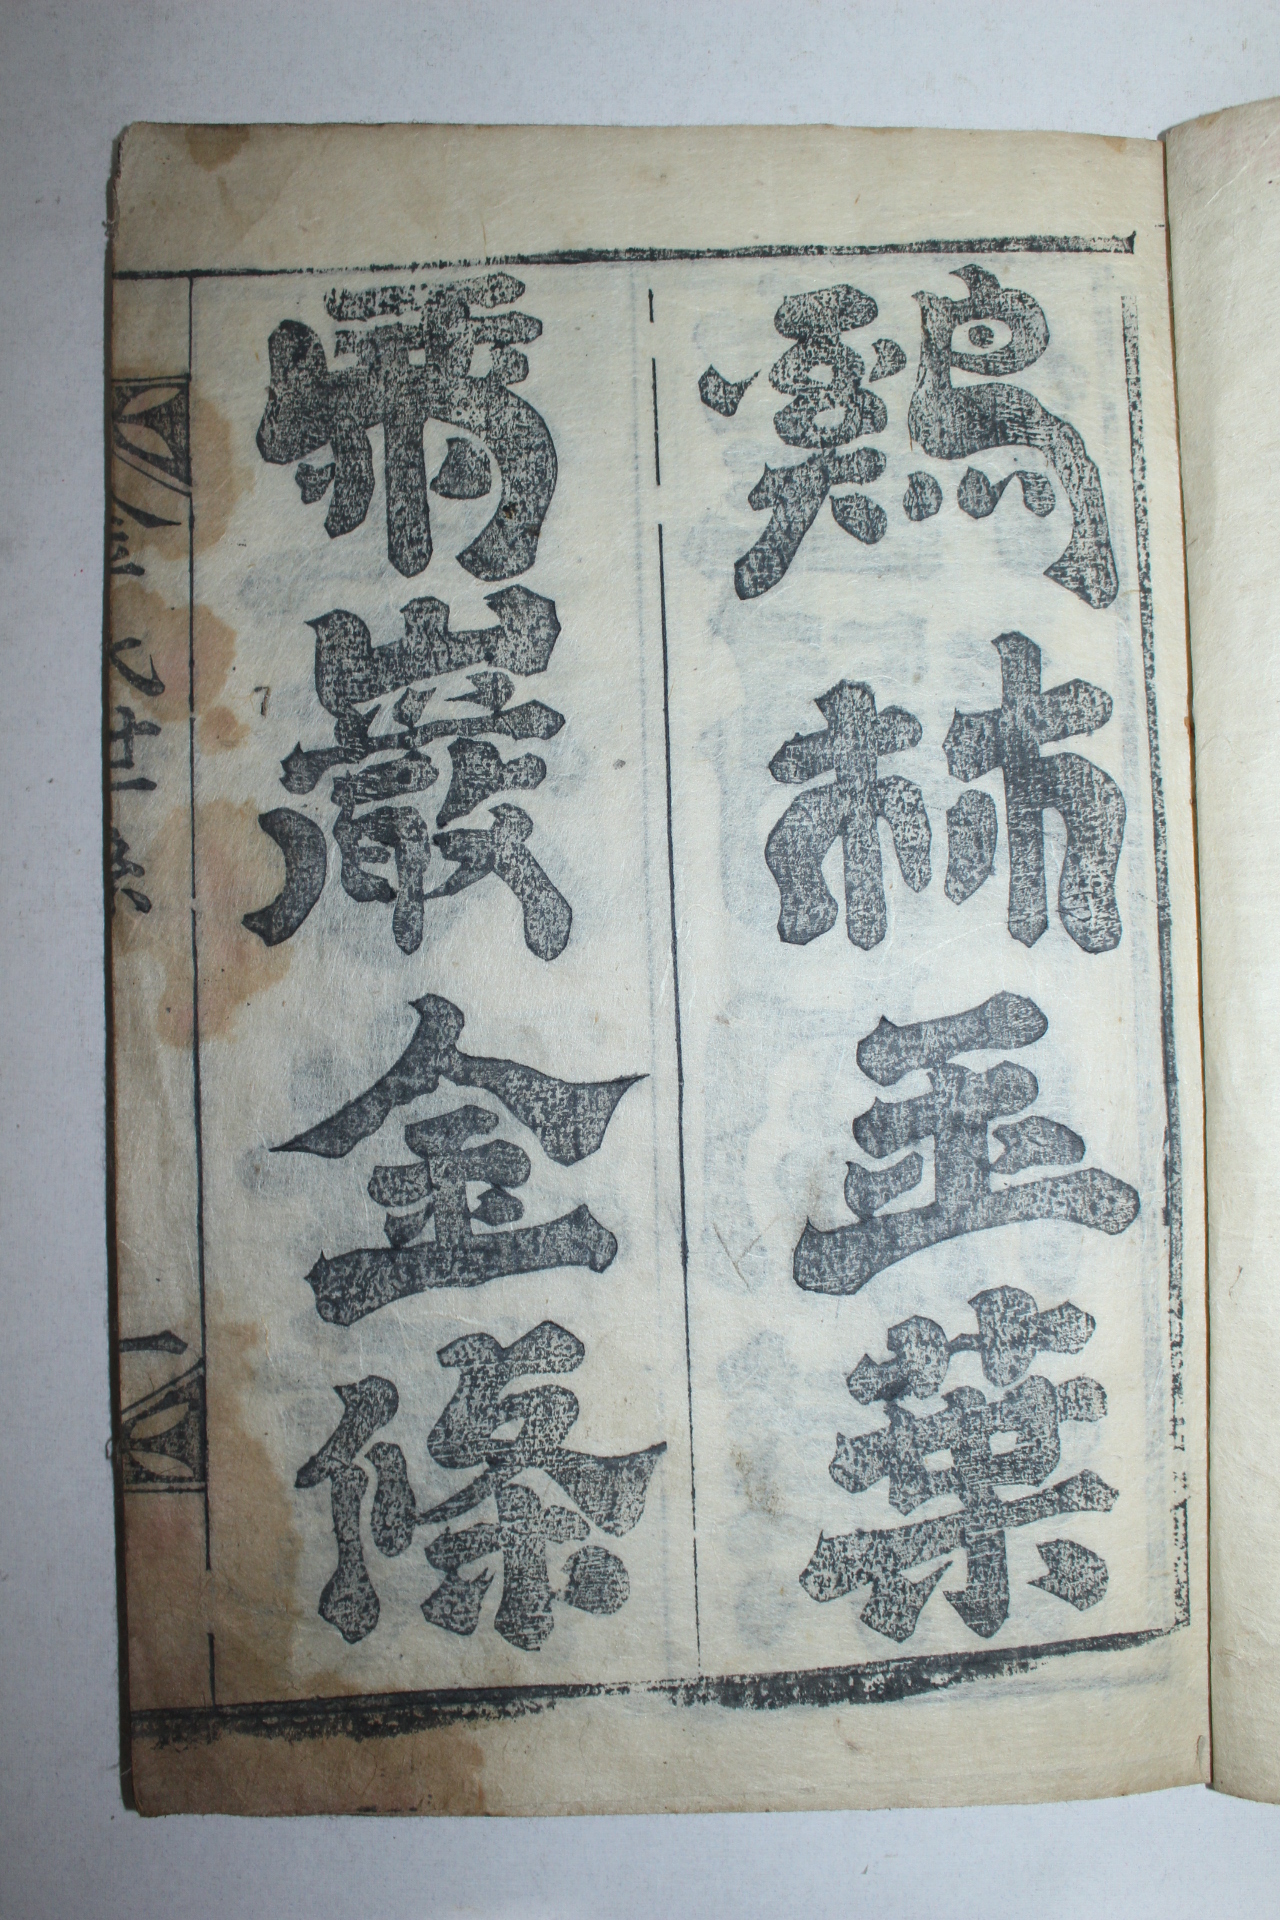 鷄林玉葉
巖金條